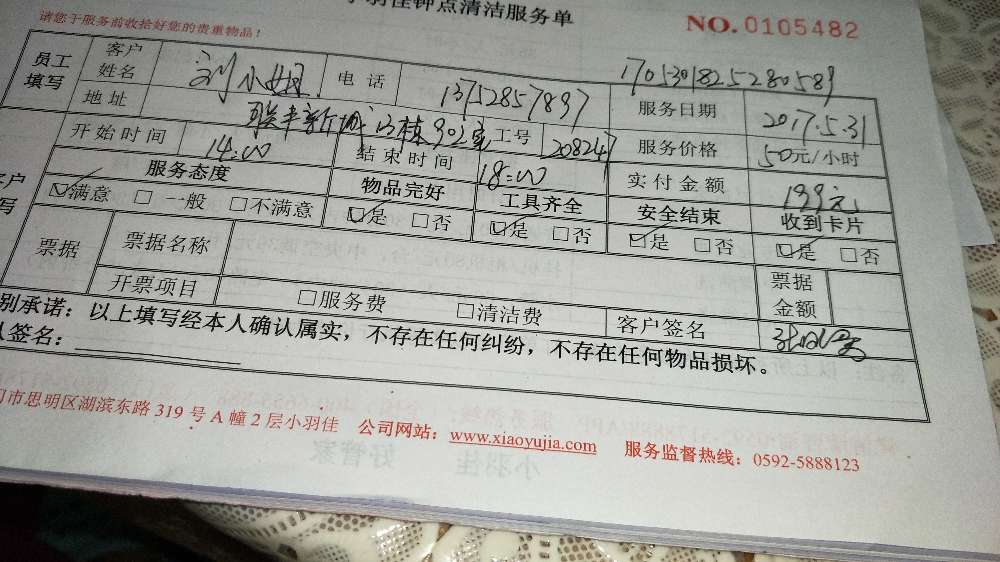 小羽佳钟点清洁服务单
请您于服务前收拾好您的贵重物品！ NO. 0105482
1705301825280589
员工填写 客户姓名 刘小姐 电话 13752857897 服务日期 2017.5.31
地址 联丰新城 栋902室 工号 208247 服务价格 50元/小时
开始时间 14:00 结束时间 18:00 实付金额 199元
服务态度 物品完好 工具齐全 安全结束 收到卡片
☑满意 □一般 □不满意 ☑是 □否 ☑是 □否 ☑是 □否 ☑是 □否
票据 票据名称 票据金额
开票项目 □服务费 □清洁费 客户签名
别承诺：以上填写经本人确认属实，不存在任何纠纷，不存在任何物品损坏。
人签名：
门市思明区湖滨东路 319 号 A 幢 2 层小羽佳 公司网站：www.xiaoyujia.com 服务监督热线：0592-5888123